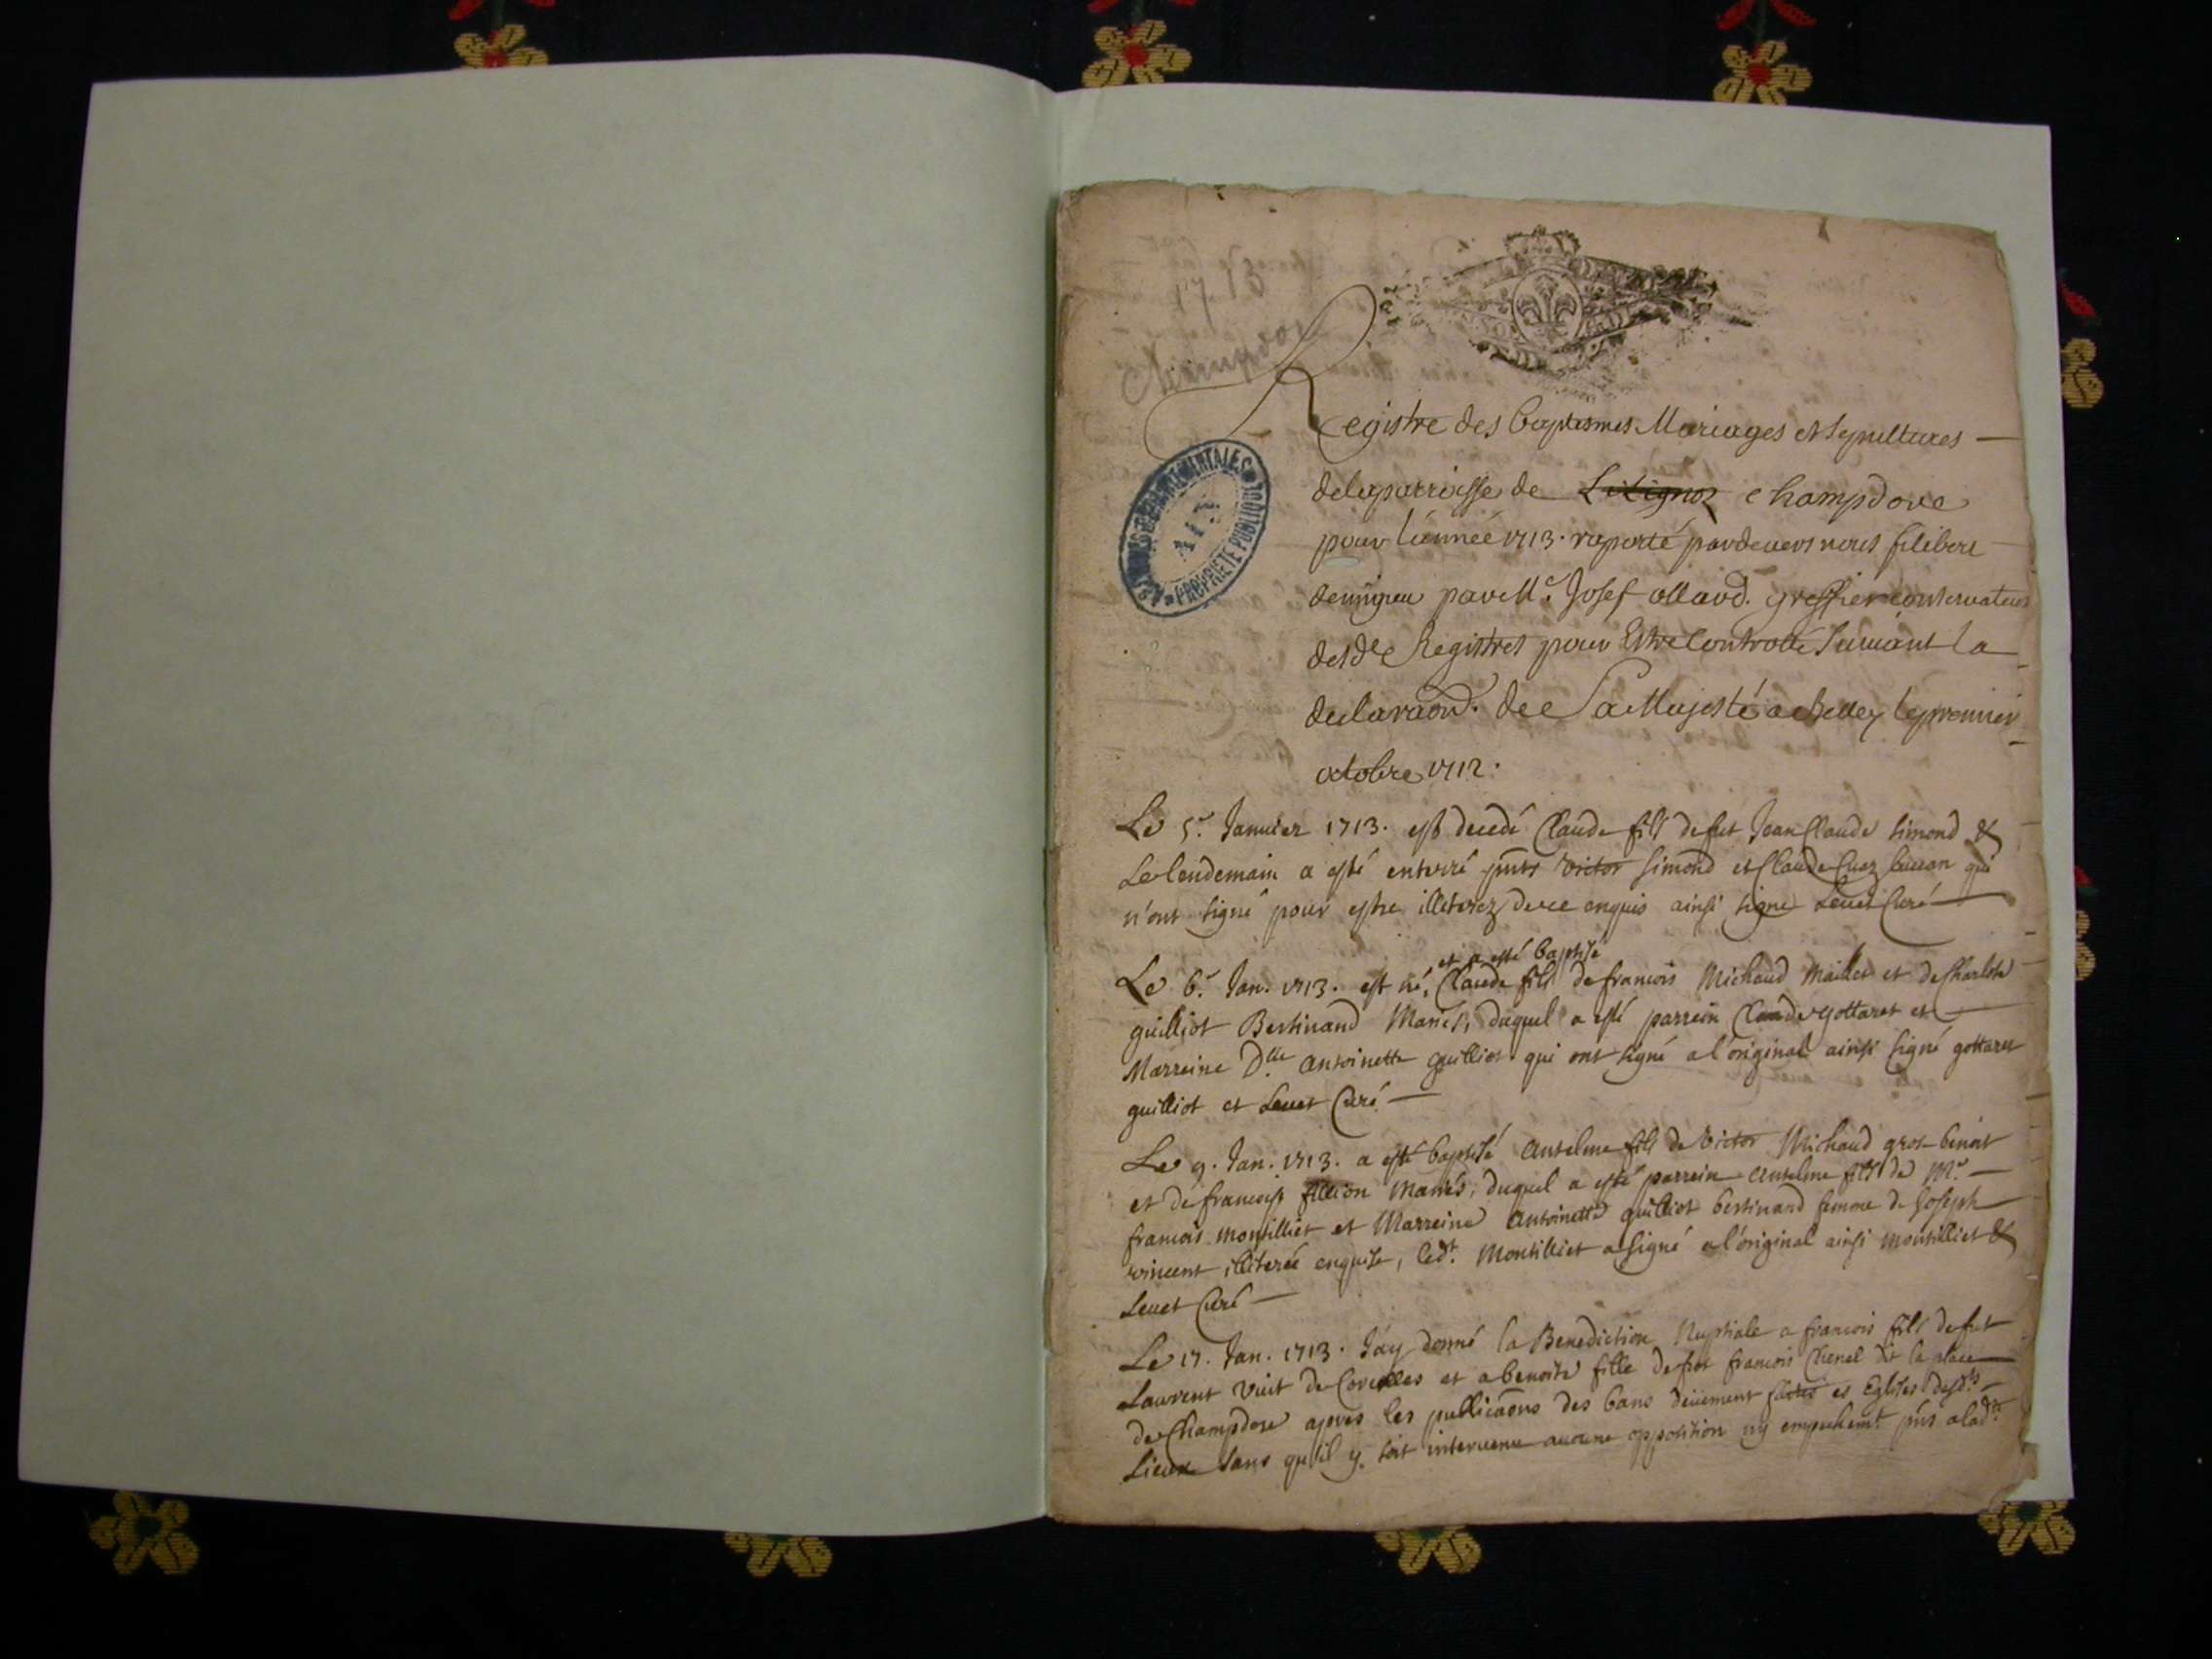 1713
Champdor
ARCHIVES DEPARTEMENTALES
AIN
PROPRIETE PUBLIQUE
Registre des baptismes Mariages et sepultures
de la parroisse de Lilignoz champdore
pour l'année 1713. raporté pardevers nous filibert
par Me. Josef ollard. greffier conservateur
desde Registres pour Estre Controllé Suivant la
declaraon. de Sa Majesté a Belley le premier
octobre 1712.
Le 5e. Januier 1713. est decedé Claude fils de fut Jean Claude Simond &
Le lendemain a esté enterré pnts victor Simond et Claude Cuaz qui
n'ont signé pour estre illiterez de ce enquis ainsi signé Leuet Curé
et a esté baptisé
Le 6e. Jan. 1713. est né, Claude fils de francois Michaud Maillet et de Charlote
guilliot Bertinand Mariés, duquel a esté parrein Claude gottaret et
Marreine Dlle antoinette guilliot qui ont signé a l'original ainsi signé gottaret
guilliot et Leuet Curé
Le 9. Jan. 1713. a esté baptisé Antelme fils de Victor Michaud gros benoit
et de francoise fillion Mariés, duquel a esté parrein Antelme fils de Mr.
francois montilliet et Marreine Antoinette guilliot bertinand femme de Joseph
vincent illiterée enquise, ledt. Montilliet a signé a l'original ainsi montilliet &
Leuet Curé
Le 17. Jan. 1713. J'ay donné la Benediction Nuptiale a francois fils de fut
Laurent Vuit de Corcelles et a benoite fille de fut francois Chenel dit la place
de Champdore apres les publicaons des bans deüement faites es Eglises desdts
Lieux sans qu'il y soit intervenu aucune opposition ny empechemt. pns a ladte